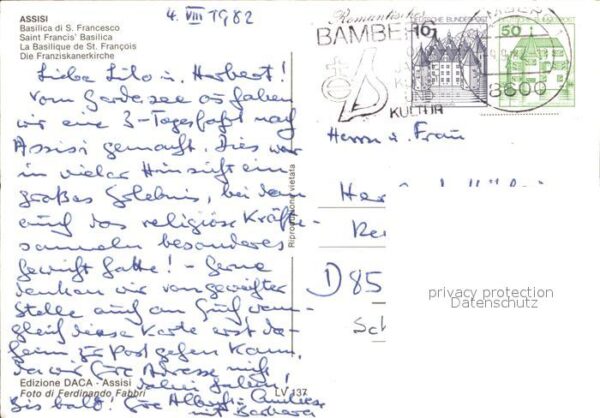 ASSISI
Basilica di S. Francesco
Saint Francis' Basilica
La Basilique de St. François
Die Franziskanerkirche
4. VIII 1982
Liebe Lilo u. Herbert!
Vom Gardasee aus haben
wir eine 3-Tagesfahrt nach
Assisi gemacht. Dies war
in vieler Hinsicht ein
großes Erlebnis, bei dem
auch das religiöse Kräfte-
sammeln besonderes
Gewicht hatte! - Gerne
denken wir von geweihter
Stelle auch an Euch wenn-
gleich diese Karte erst da-
heim zur Post gehen kann,
da wir Eure Adresse nicht
dabei haben!
Bis bald! Eure
mit Barbara
Edizione DACA - Assisi
Foto di Ferdinando Fabbri
LV 137
Riproduzione vietata
Romantisches
BAMBERG
KULTUR
DEUTSCHE BUNDESPOST
10
50
8600
Herrn u. Frau
Her
D 85
privacy protection
Datenschutz